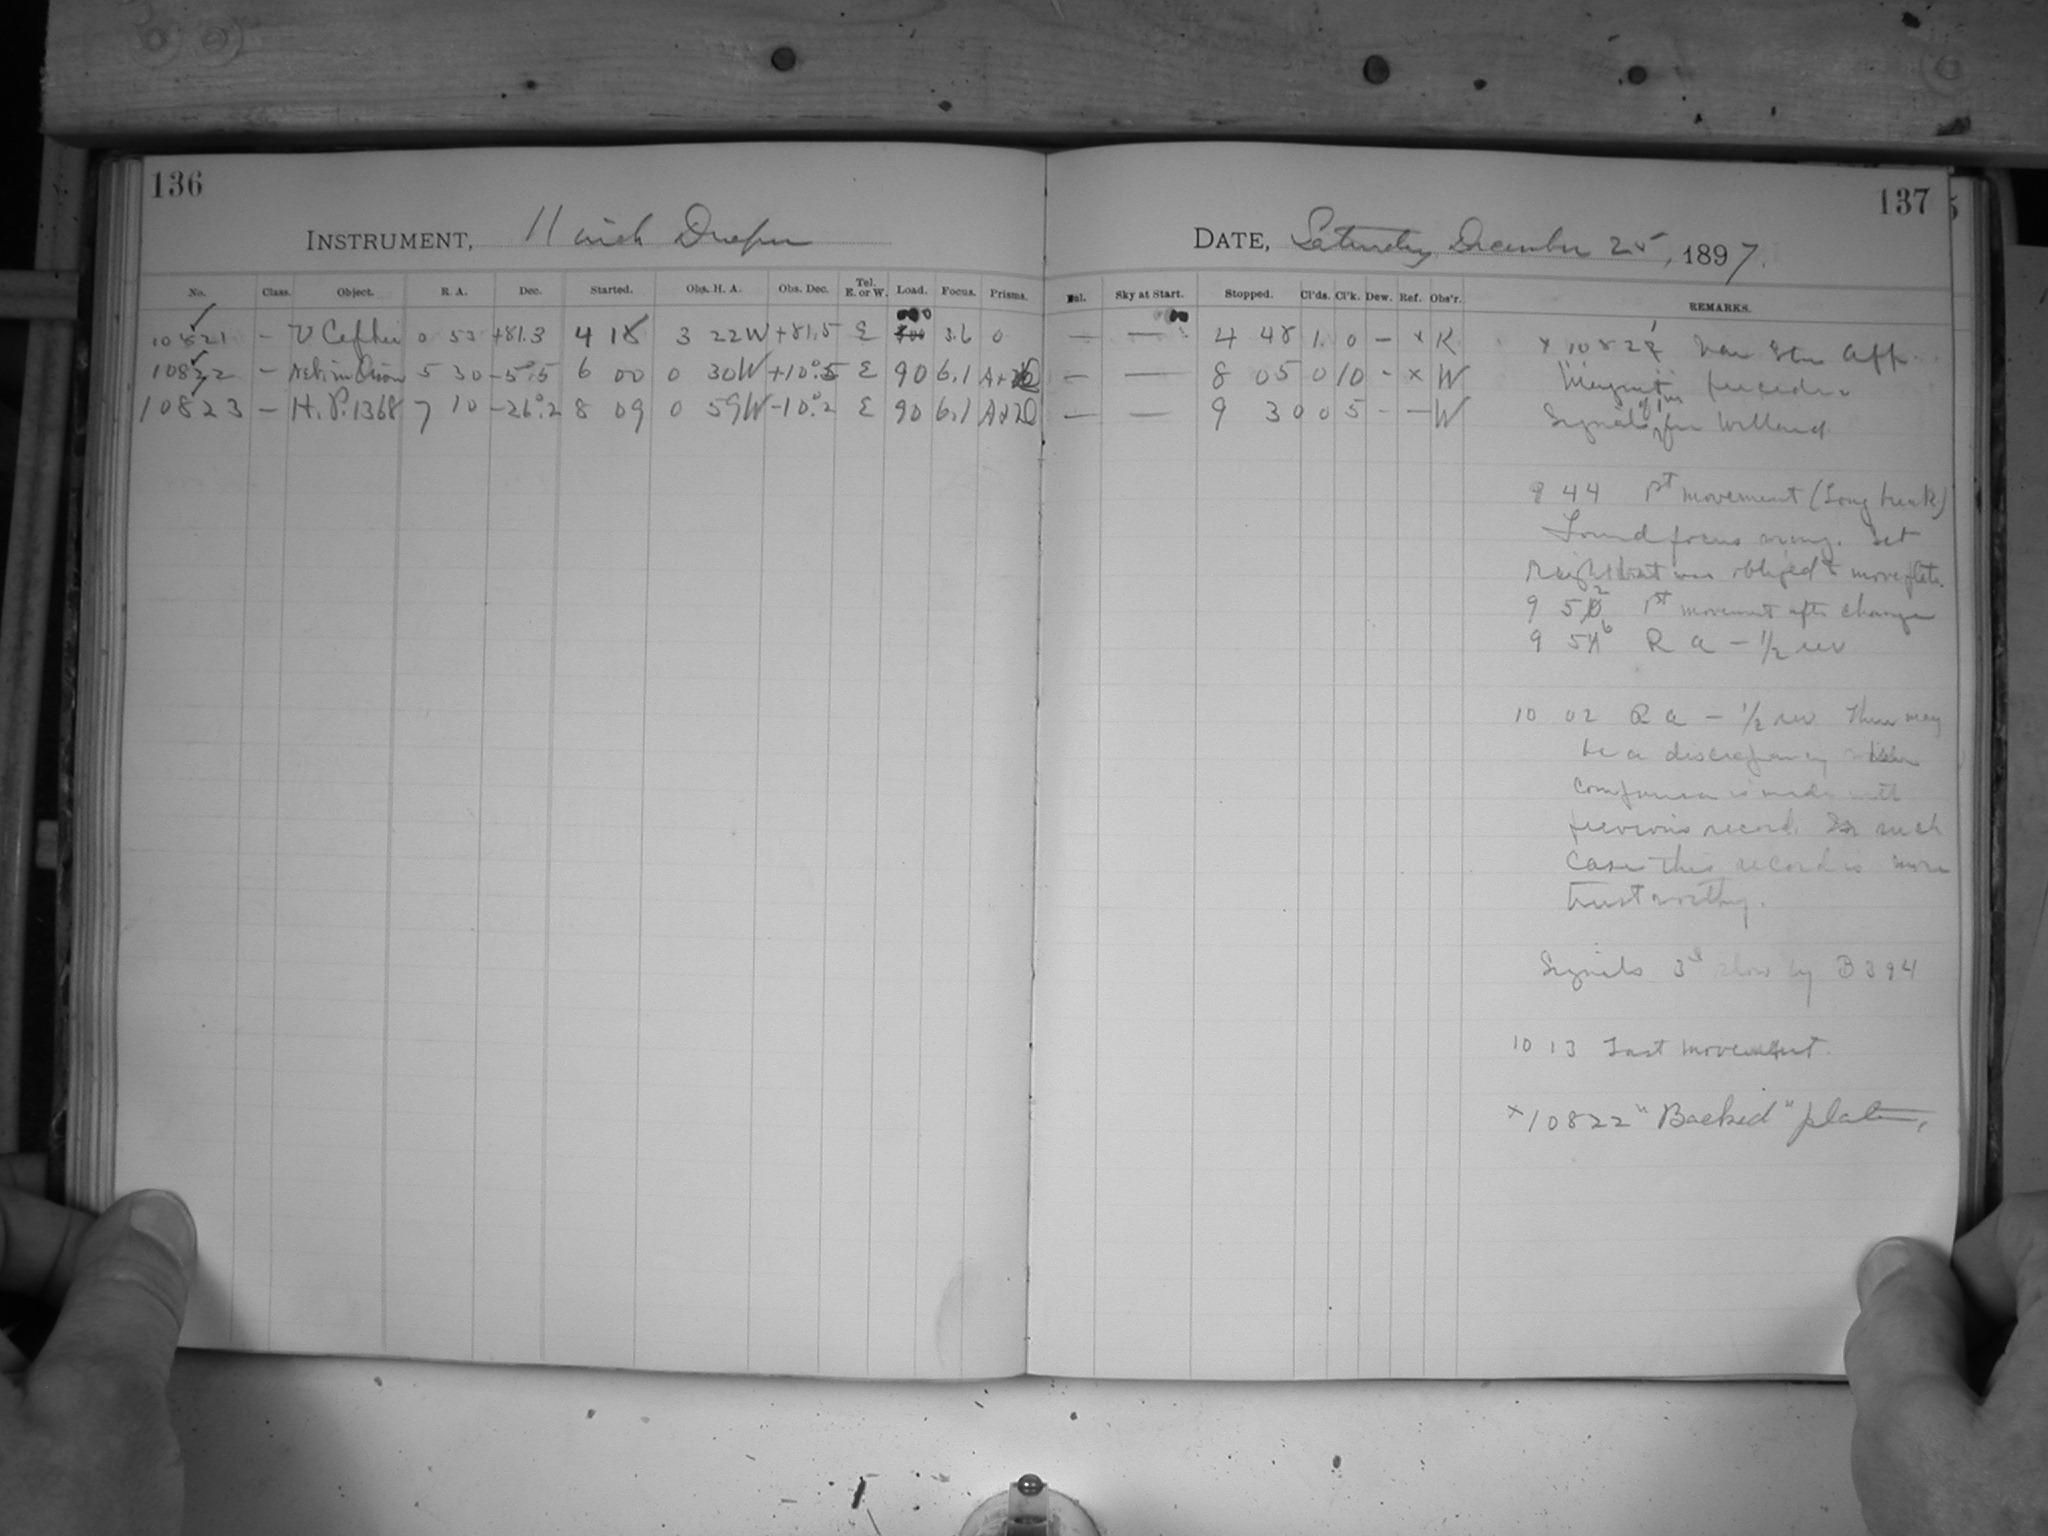 136
137
INSTRUMENT, 11 inch Draper
DATE, Saturday, December 25, 1897.
No. Class. Object. R. A. Dec. Started. Obs. H. A. Obs. Dec. Tel. E. or W. Load. Focus. Prisms. Sky at Start. Stopped. Cl'ds. Cl'k. Dew. Ref. Obs'r. REMARKS.
10821 – U Cephei 0 53 +81.3 4 18 3 22W +81.5 E 3.6 0 — — 4 48 1. 0 – x K
10822 – Neb in Orion 5 30 –5°.5 6 00 0 30W +10°.5 E 90 6.1 — — 8 05 0 10 - x W
10823 – H.P. 1368 7 10 –26°.2 8 09 0 59W –10°.2 E 90 6.1 — — 9 30 0 5 - – W
x 1082
Signals for Willard
9 44 1st movement (Long break)
Found focus wrong. Set
Right but was obliged to move plate.
9 52 1st movement after change
9 56 R a – 1/2 rev
10 02 R a – 1/2 rev There may
be a discrepancy when
comparison is made with
previous record. In such
case this record is more
trustworthy.
Signals 3s slow by B 394
10 13 Last movement.
x 10822 "Backed" plate,